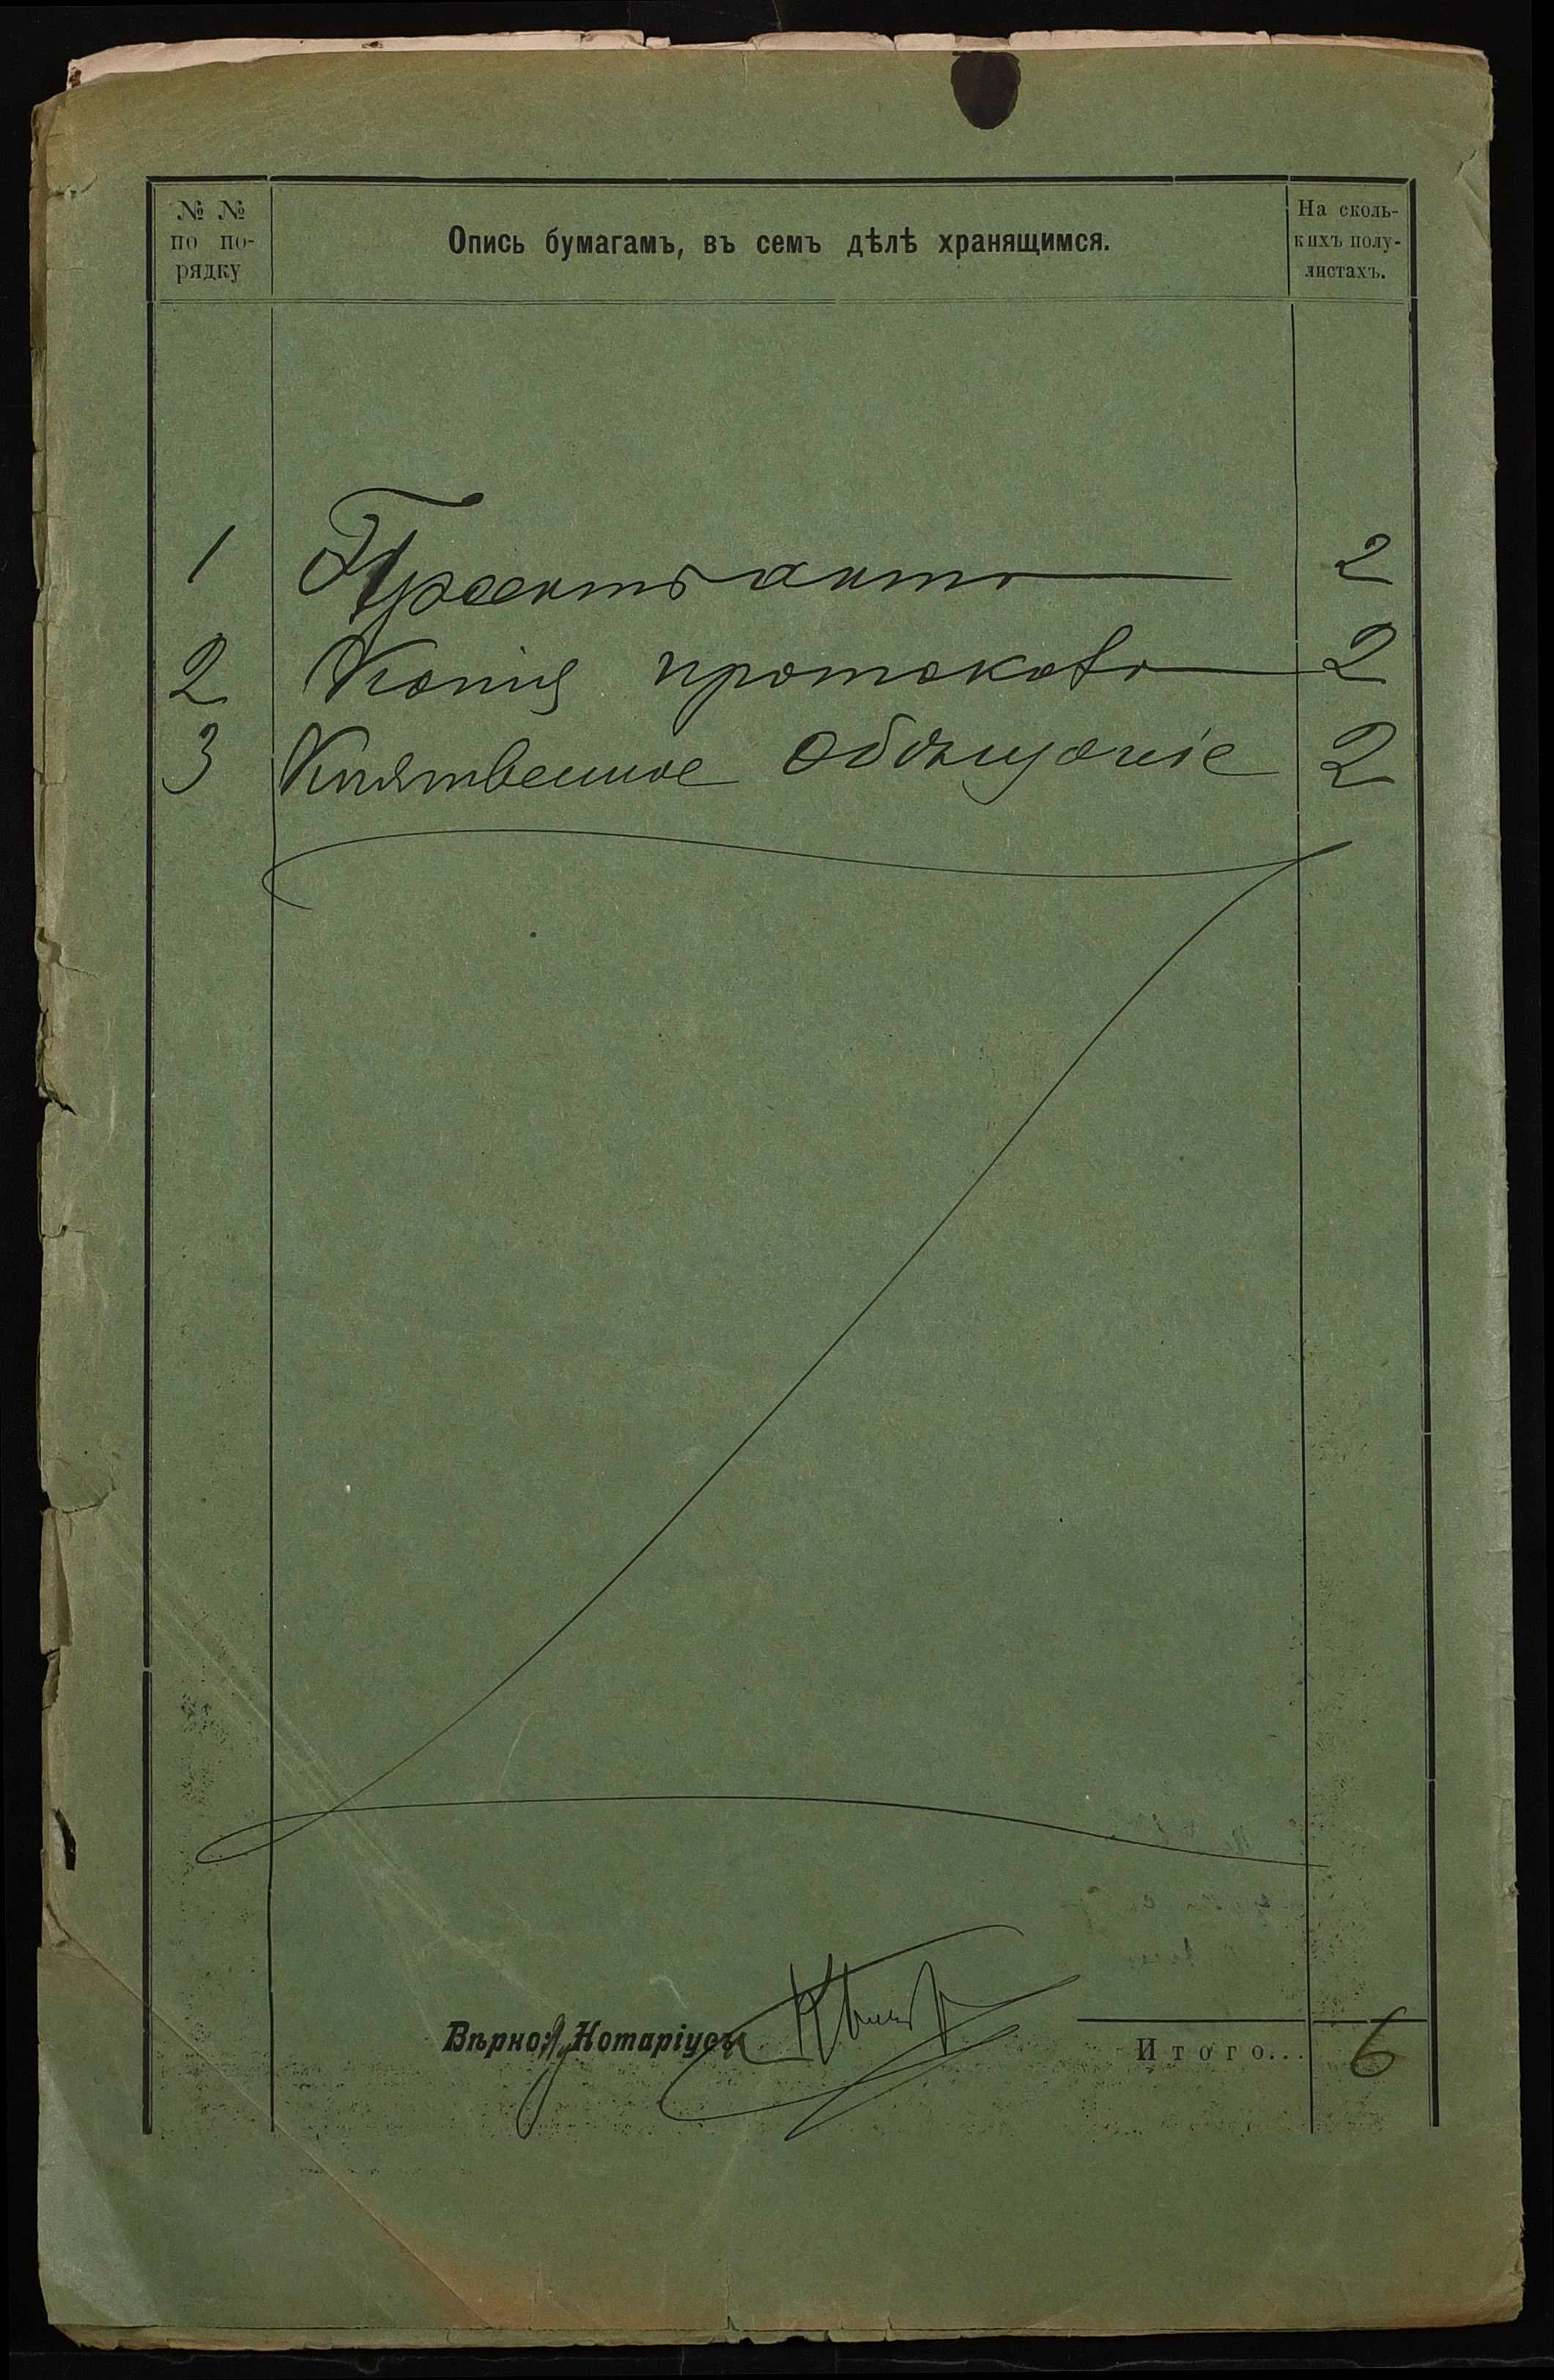 № №
по по-
рядку
Опись бумагамъ, въ семъ дѣлѣ хранящимся.
На сколь-
кихъ полу-
листахъ.
1 Проектъ акта 2
2 Копія протокола 2
3 Клятвенное обѣщаніе 2
Вѣрно: Нотаріусъ
Итого... 6